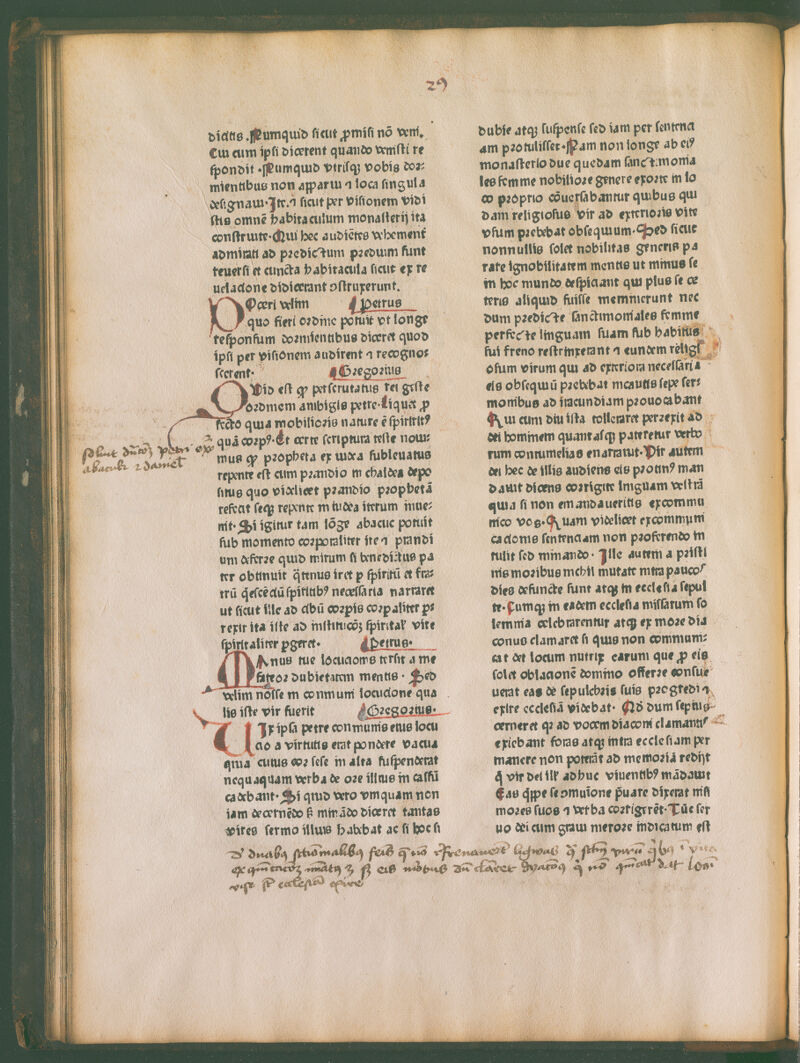 29
dictis. Numquid sicut ꝓmisi nō veni.
Cui cum ipsi dicerent quando venisti re
spondit. Numquid vtrisqꝫ vobis dor⸗
mientibus non apparui ⁊ loca singula
designaui. Ite. ⁊ sicut per visionem vidi
stis omnē habitaculum monasterij ita
construite. Qui hec audiētes vehement̄
admirati ad predictum predium sunt
reuersi et cuncta habitacula sicut ex re
uelacione didicerant ꝯstruxerunt.
Doceri velim Petrus
quo fieri ordine potuit vt longe
responsum dormientibus diceret quod
ipsi per visionem audirent ⁊ recognos
scerent. Gregorius
Quid est ꝙ perscrutatus rei geste
ordinem ambigis petre. Liquet ꝓ
fecto quia mobilioris nature ē spiritꝰ
quā corpꝰ. Et certe scriptura teste noui⸗
mus ꝙ propheta ex iudea subleuatus
repente est cum prandio in chaldea depo
situs quo videlicet prandio prophetā
refecit seqꝫ repente in iudea iterum inue⸗
nit. Si igitur tam lōge abacuc potuit
sub momento corporaliter ire ⁊ prandi
um deferre quid mirum si benedictus pa
ter obtinuit q̄tenus iret ꝑ spiritū et fra⸗
trū q̄escēciū spiritibꝰ necessaria narraret
ut sicut ille ad cibū corꝑis corꝑaliter ꝑ⸗
rexit ita iste ad institucōꝫ spiritał vite
spiritaliter ꝑgeret. Petrus.
Manus tue locucionis tersit a me
fateor dubietatem mentis. Sed
velim nosse in conmuni locucione qua
lis iste vir fuerit Gregorius.
Uix ipsa petre conmunis eius locu
cio a virtutis erat pondere vacua
quia cuius cor sese in alta suspenderat
nequaquam verba de ore illius in cassū
cadebant. Si quid vero vmquam non
iam decernēdo s̄ minādo diceret tantas
vires sermo illius habebat ac si hoc si
dubie atqꝫ suspense sed iam per sentenci
am protulisset. Nam non longe ab eiꝰ
monasterio due quedam sanctimonia
les femine nobiliore genere exorte in lo
co proprio cōuersabantur quibus qui
dam religiosus vir ad exterioris vite
vsum prebebat obsequium. Sed sicut
nonnullis solet nobilitas generis pa
rare ignobilitatem mentis ut minus se
in hoc mundo despiciant qui plus se ce
teris aliquid fuisse meminerunt nec
dum predicte sanctimoniales femine
perfecte linguam suam sub habitus
sui freno restrinxerant ⁊ eundem religi
osum virum qui ad exteriora necessaria
eis obsequiū prebebat incautis sepe ser⸗
monibus ad iracundiam prouocabant
Qui cum diu ista tolleraret perrexit ad
dei hominem quantasqꝫ pateretur verbo
rum contumelias enarrauit. Vir autem
dei hec de illis audiens eis protinꝰ man
dauit dicens corrigite linguam vestrā
quia si non emendaueritis excommu
nico vos. Quam videlicet excommuni
cacionis sentenciam non proferendo in
tulit sed minando. Ille autem a pristi
nis moribus nichil mutate intra paucos
dies defuncte sunt atqꝫ in ecclesia sepul
te. Cumqꝫ in eadem ecclesia missarum so
lemnia celebrarentur atqꝫ ex more dia
conus clamaret si quis non communi⸗
cat det locum nutrix earum que ꝓ eis
solet oblacionē domino offerre consue
uerat eas de sepulchris suis progredi ⁊
exire ecclesiā videbat. Qd dum sepius
cerneret qꝛ ad vocem diaconi clamantis
exiebant foras atqꝫ intra ecclesiam per
manere non poterāt ad memoriā redijt
q̄ vir dei ill' adhuc viuentibꝰ mādauit
Eas q̄ppe se cōmuione p̄uare dixerat nisi
mores suos ⁊ verba corrigerēt. Tūc ser
uo dei cum graui merore indicatum est